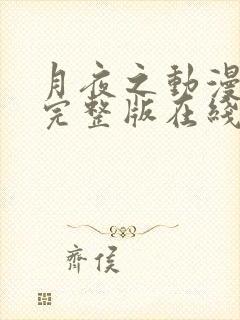 月夜之動漫
完整版在綫
齊侯